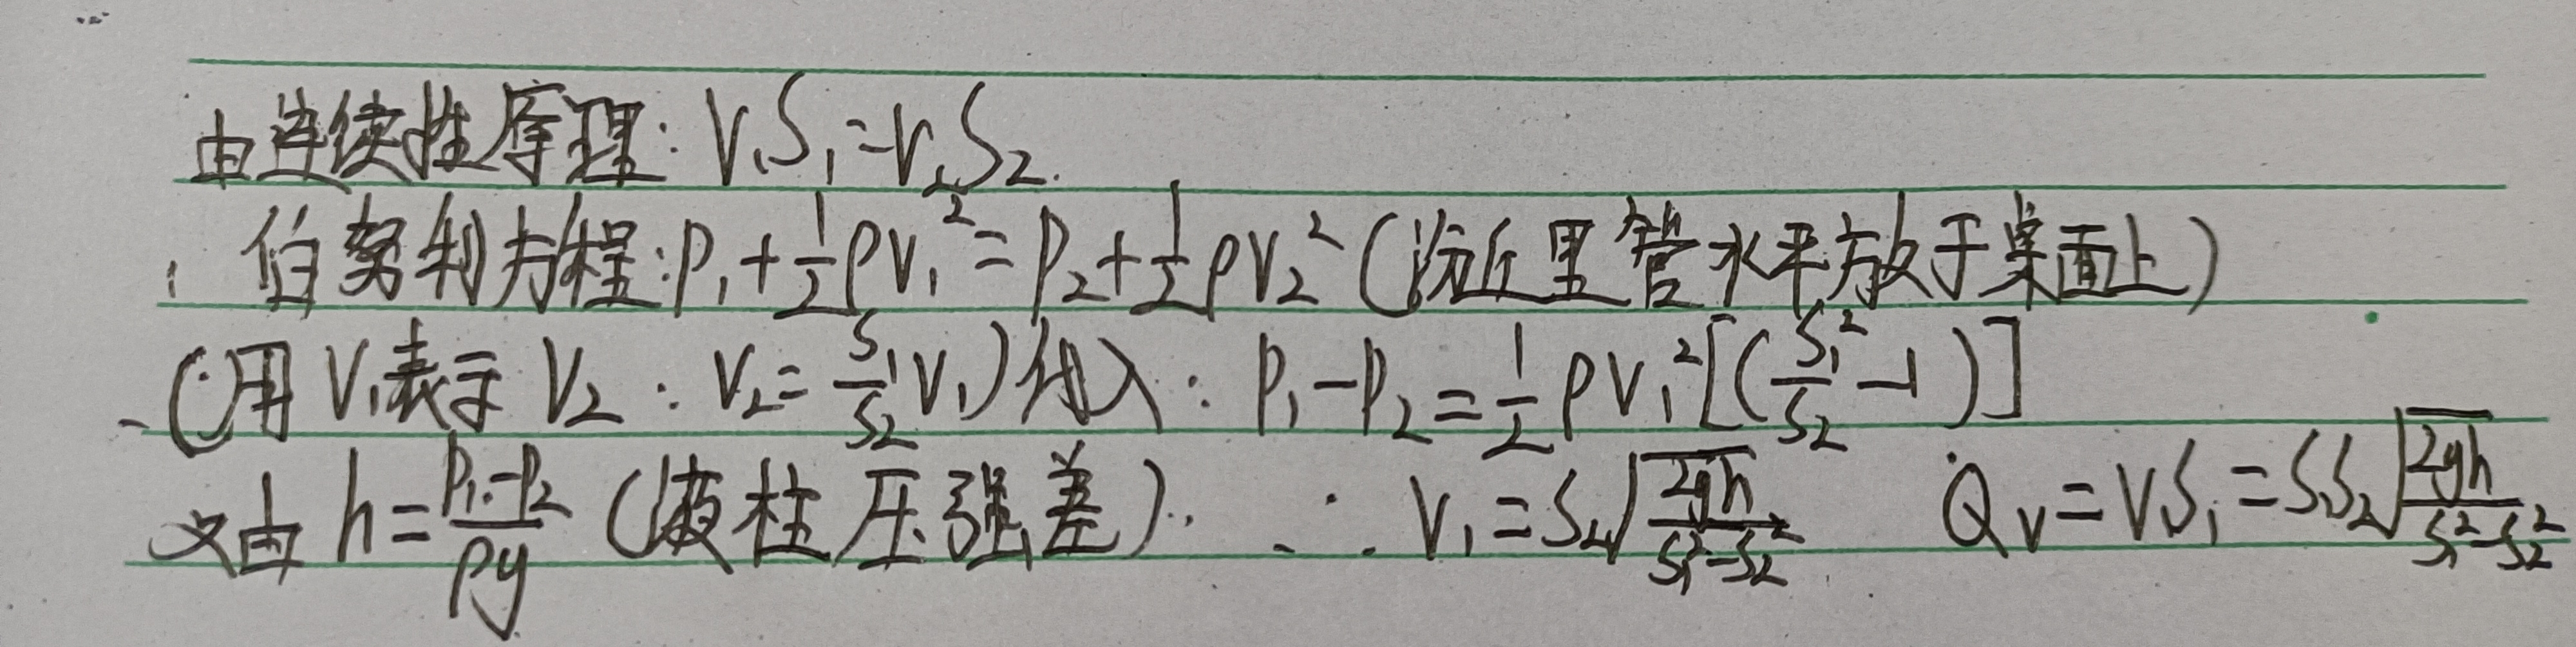 由连续性原理: V₁S₁=V₂S₂.
伯努利方程:P₁+½ρV₁²=P₂+½ρV₂²(汾丘里管水平放于桌面上)
(用V₁表示V₂:V₂=S₁/S₂V₁)代入:P₁-P₂=½ρV₁²[(S₁²/S₂-1)]
又由h=(P₁-P₂)/ρg(液柱压强差). ∴V₁=S₂√(2gh/(S₁²-S₂²)) Qv=V₁S₁=S₁S₂√(2gh/(S₁²-S₂²))